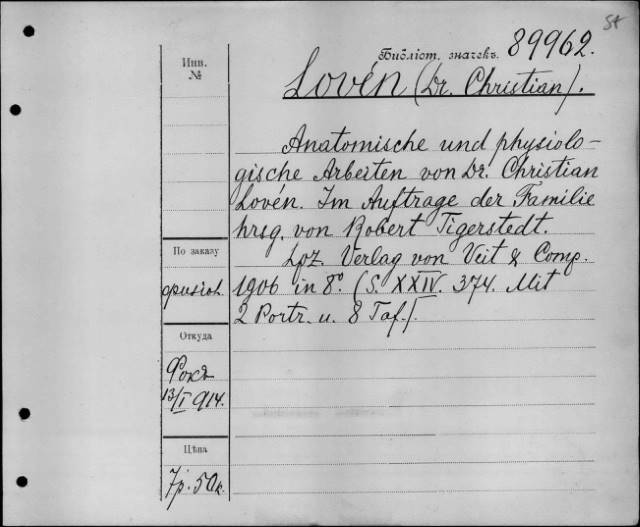 St
Библіот. значекъ. 89962.
Инв.
№
Lovén (Dr. Christian).
Anatomische und physiolo-
gische Arbeiten von Dr. Christian
Lovén. Im Auftrage der Familie
hrsg. von Robert Tigerstedt.
Lpz. Verlag von Veit & Comp.
1906 in 8º. (S. XXIV. 374. Mit
2 Portr. u. 8 Taf.).
По заказу
физіол.
Откуда
Фокъ
13/I 914.
Цѣна
7р. 50к.